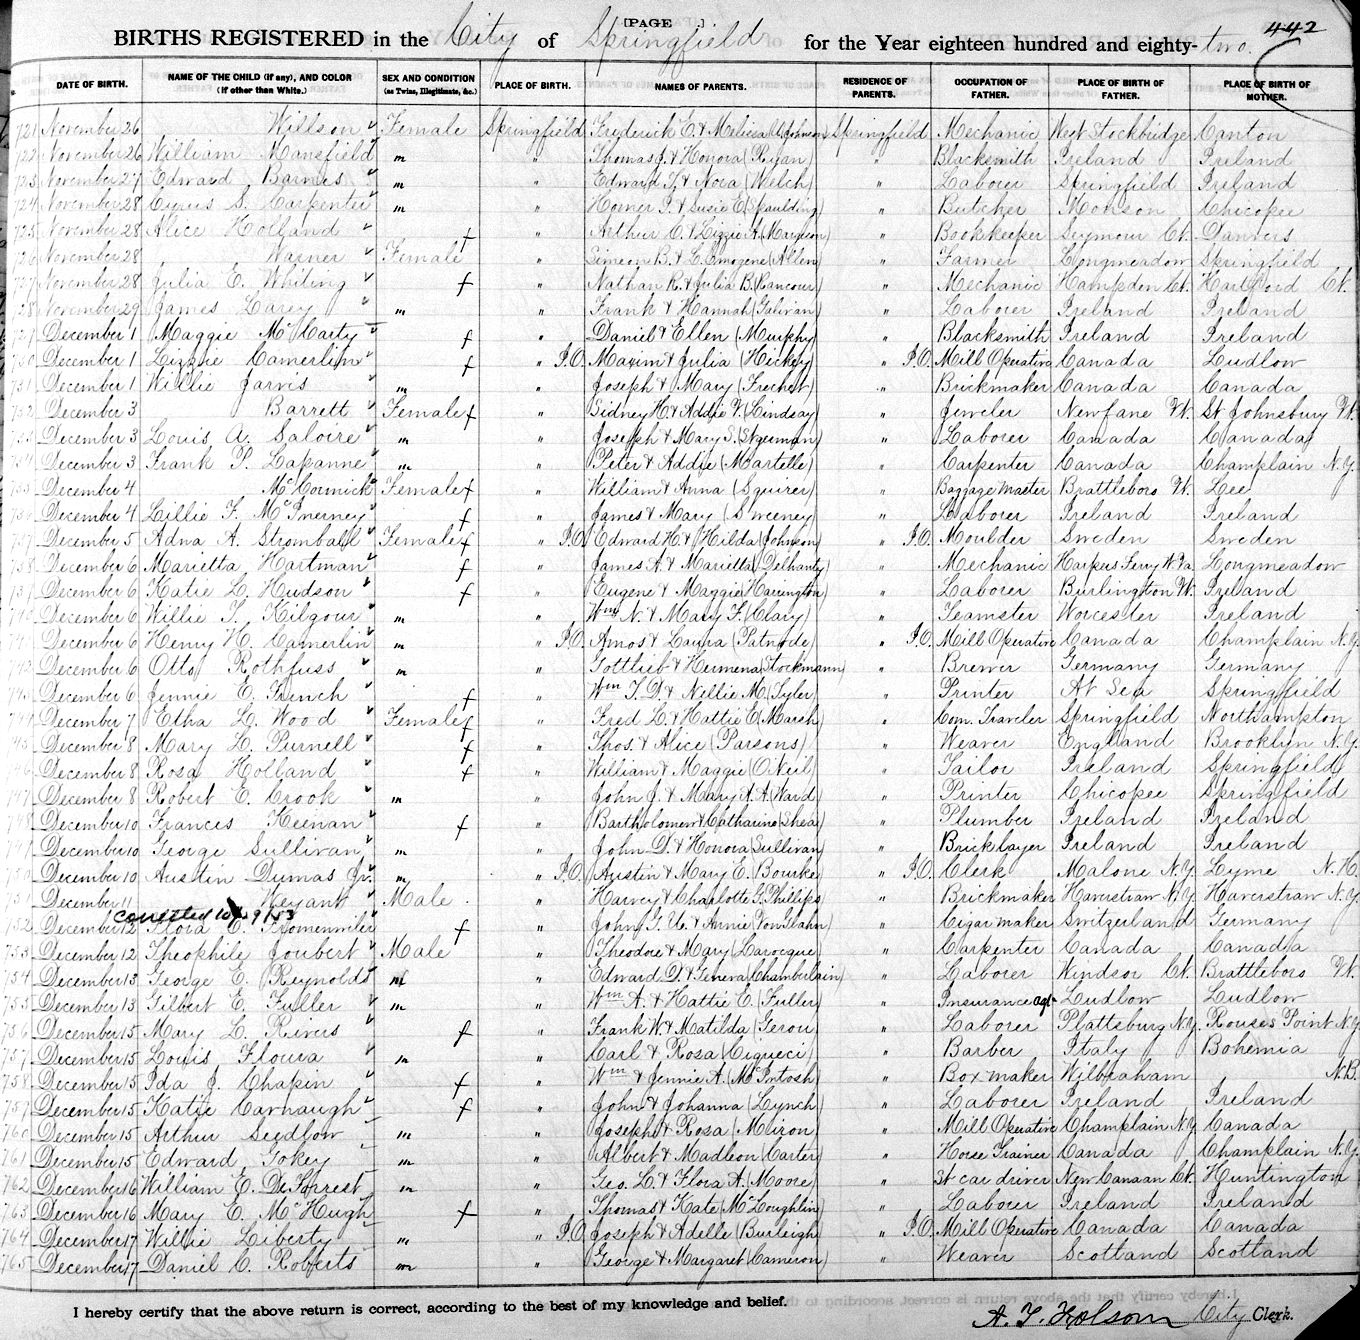 [PAGE ] 442
BIRTHS REGISTERED in the City of Springfield for the Year eighteen hundred and eighty-two.
DATE OF BIRTH. NAME OF THE CHILD (if any), AND COLOR (if other than White.) SEX AND CONDITION (as Twins, Illegitimate, &c.) PLACE OF BIRTH. NAMES OF PARENTS. RESIDENCE OF PARENTS. OCCUPATION OF FATHER. PLACE OF BIRTH OF FATHER. PLACE OF BIRTH OF MOTHER.
721 November 26 Willson Female Springfield Frederick E. & Melissa (Johnson) Springfield Mechanic West Stockbridge Canton
722 November 26 William Mansfield m " Thomas J. & Honora (Ryan) " Blacksmith Ireland Ireland
723 November 27 Edward Barnes m " Edward T. & Nora (Welch) " Laborer Springfield Ireland
724 November 28 Cyrus S. Carpenter m " Homer P. & Susie E. (Spaulding) " Butcher Monson Chicopee
725 November 28 Alice Holland f " Arthur C. & Lizzie A. " Bookkeeper Seymour Ct. Danvers
726 November 28 Warner Female " Simeon B. & L. Emogene (Allen) " Farmer Longmeadow Springfield
727 November 28 Julia E. Whiting f " Nathan R. & Julia B. (Rancour) " Mechanic Hampden Ct. Hartford Ct.
728 November 29 James Carey m " Frank & Hannah (Galivan) " Laborer Ireland Ireland
729 December 1 Maggie McCarty f " Daniel & Ellen (Murphy) " Blacksmith Ireland Ireland
730 December 1 Lizzie Camerlin f " I.O. Maxim & Julia (Hickey) " I.O. Mill Operative Canada Ludlow
731 December 1 Willie Jarvis m " Joseph & Mary (Frechet) " Brickmaker Canada Canada
732 December 3 Barrett Female f " Sidney H. & Addie V. (Lindsay) " Jeweler Newfane Vt. St Johnsbury Vt.
733 December 3 Louis A. Saloire m " Joseph & Mary S. (St german) " Laborer Canada Canada
734 December 3 Frank P. Lapanne m " Peter & Addie (Martelle) " Carpenter Canada Champlain N.Y.
735 December 4 McCormick Female f " William & Anna (Squirer) " Baggage Master Brattleboro Vt. Lee
736 December 4 Lillie F. McInerney f " James & Mary (Sweeney) " Laborer Ireland Ireland
737 December 5 Adna A. Stromball Female f " I.O. Edward H. & Hilda (Johnson) " I.O. Moulder Sweden Sweden
738 December 6 Marietta Hartman f " James A. & Marietta (Delhanty) " Mechanic Harpers Ferry W.Va. Longmeadow
739 December 6 Katie L. Hudson f " Eugene & Maggie (Harrington) " Laborer Burlington Vt. Ireland
740 December 6 Willie T. Kilgour m " Wm N. & Mary F. (Clary) " Teamster Worcester Ireland
741 December 6 Henry H. Camerlin m " I.O. Amos & Laura (Patnode) " I.O. Mill Operative Canada Champlain N.Y.
742 December 6 Otto Rothfuss m " Gottlieb & Hermena (Stockmann) " Brewer Germany Germany
743 December 6 Jennie E. French f " Wm T. D. & Nellie M. (Tyler) " Printer At Sea Springfield
744 December 7 Etha L. Wood Female f " Fred L. & Hattie E. (Marsh) " Com. Traveler Springfield Northampton
745 December 8 Mary L. Purnell f " Thos. & Alice (Parsons) " Weaver England Brooklyn N.Y.
746 December 8 Rosa Holland f " William & Maggie (O'Neil) " Tailor Ireland Springfield
747 December 8 Robert E. Crook m " John J. & Mary A. A. (Ward) " Printer Chicopee Springfield
748 December 10 Frances Keenan f " Bartholomew & Catharine (Shea) " Plumber Ireland Ireland
749 December 10 George Sullivan m " John D. & Honora (Sullivan) " Bricklayer Ireland Ireland
750 December 10 Austin Dumas Jr. m " I.O. Austin & Mary E. (Bourke) " I.O. Clerk Malone N.Y. Lyme N.H.
751 December 11 Keyant Male " Harvey & Charlotte G. (Phillips) " Brickmaker Haverstraw N.Y. Haverstraw N.Y.
corrected 9/53
752 December 12 Flora E. f " John G. U. & Annie (Von Glahn) " Cigar maker Switzerland Germany
753 December 12 Theophile Joubert Male " Theodore & Mary (Larocque) " Carpenter Canada Canada
754 December 13 George E. Reynolds m " Edward D. & Geneva (Chamberlain) " Laborer Windsor Ct. Brattleboro Vt.
755 December 13 Gilbert E. Fuller m " Wm A. & Hattie E. (Fuller) " Insurance agt. Ludlow Ludlow
756 December 15 Mary L. Rivers f " Frank W. & Matilda (Gerou) " Laborer Plattsburg N.Y. Rouses Point N.Y.
757 December 15 Louis Floura m " Carl & Rosa (Ciqueci) " Barber Italy Bohemia
758 December 15 Ida J. Chapin f " Wm & Jennie A. (McIntosh) " Box maker Wilbraham N.B.
759 December 15 Katie Carhaugh f " John & Johanna (Lynch) " Laborer Ireland Ireland
760 December 15 Arthur Seedlow m " Joseph & Rosa (Miron) " Mill Operative Champlain N.Y. Canada
761 December 15 Edward Gokey m " Albert & Madleon (Carter) " Horse Trainer Canada Champlain N.Y.
762 December 16 William E. DeForrest m " Geo. L. & Flora A. (Moore) " St car driver New Canaan Ct. Huntington
763 December 16 Mary E. McHugh f " Thomas & Kate (McLoughlin) " Laborer Ireland Ireland
764 December 17 Willie Liberty m " I.O. Joseph & Adelle (Burleigh) " I.O. Mill Operative Canada Canada
765 December 17 Daniel C. Roberts m " George & Margaret (Cameron) " Weaver Scotland Scotland
I hereby certify that the above return is correct, according to the best of my knowledge and belief.
A. T. Folsom City Clerk.